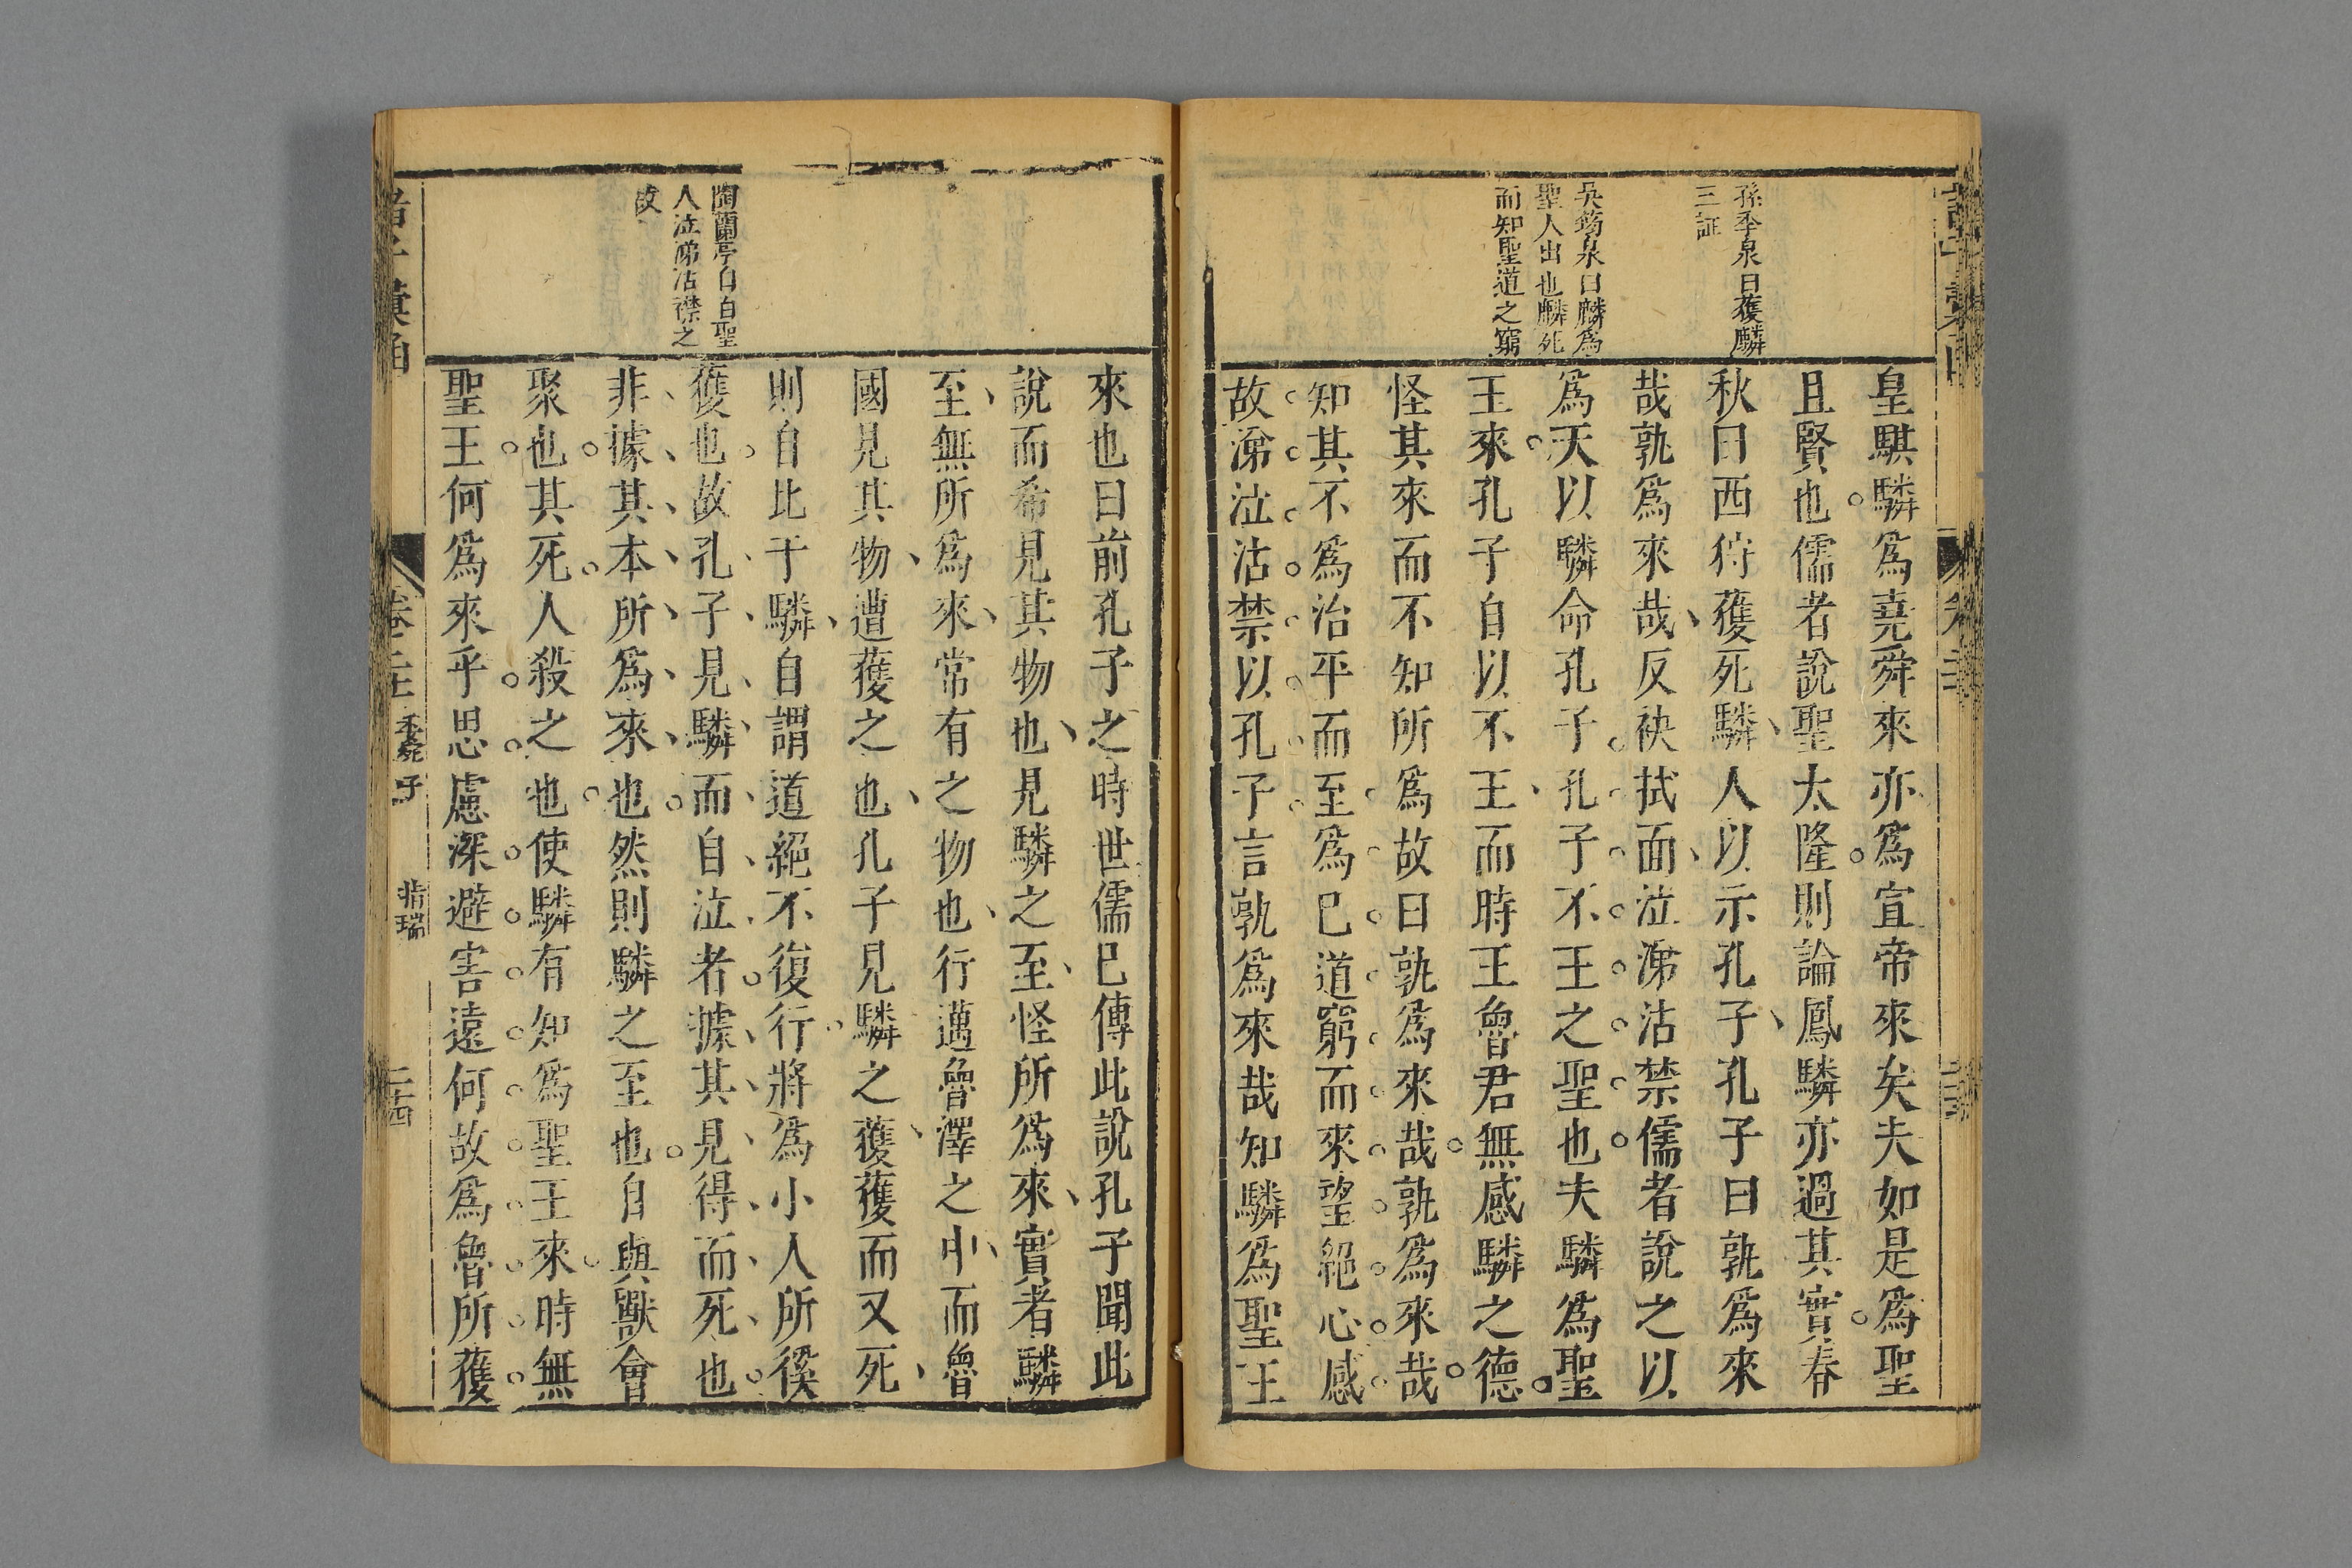 孫季泉曰獲麟
三証
吳筠泉曰麟爲
聖人出也麟死
而知聖道之窮
皇騏驎爲堯舜來亦爲宣帝來矣夫如是爲聖
且賢也儒者說聖太隆則論鳳驎亦過其實春
秋曰西狩獲死驎人以示孔子孔子曰孰爲來
哉孰爲來哉反袂拭面泣涕沾禁儒者說之以
爲天以驎命孔子孔子不王之聖也夫驎爲聖
王來孔子自以不王而時王魯君無感驎之德
怪其來而不知所爲故曰孰爲來哉孰爲來哉
知其不爲治平而至爲已道窮而來望絕心感
故涕泣沾禁以孔子言孰爲來哉知驎爲聖王
陶蘭亭白自聖
人泣涕沾襟之
故
來也曰前孔子之時世儒已傳此說孔子聞此
說而希見其物也見驎之至怪所爲來實者驎
至無所爲來常有之物也行邁魯澤之中而魯
國見其物遭獲之也孔子見驎之獲獲而又死
則自比于驎自謂道絕不復行將爲小人所徯
獲也故孔子見驎而自泣者據其見得而死也
非據其本所爲來也然則驎之至也自與獸會
聚也其死人殺之也使驎有知爲聖王來時無
聖王何爲來乎思慮深避害遠何故爲魯所獲
指瑞